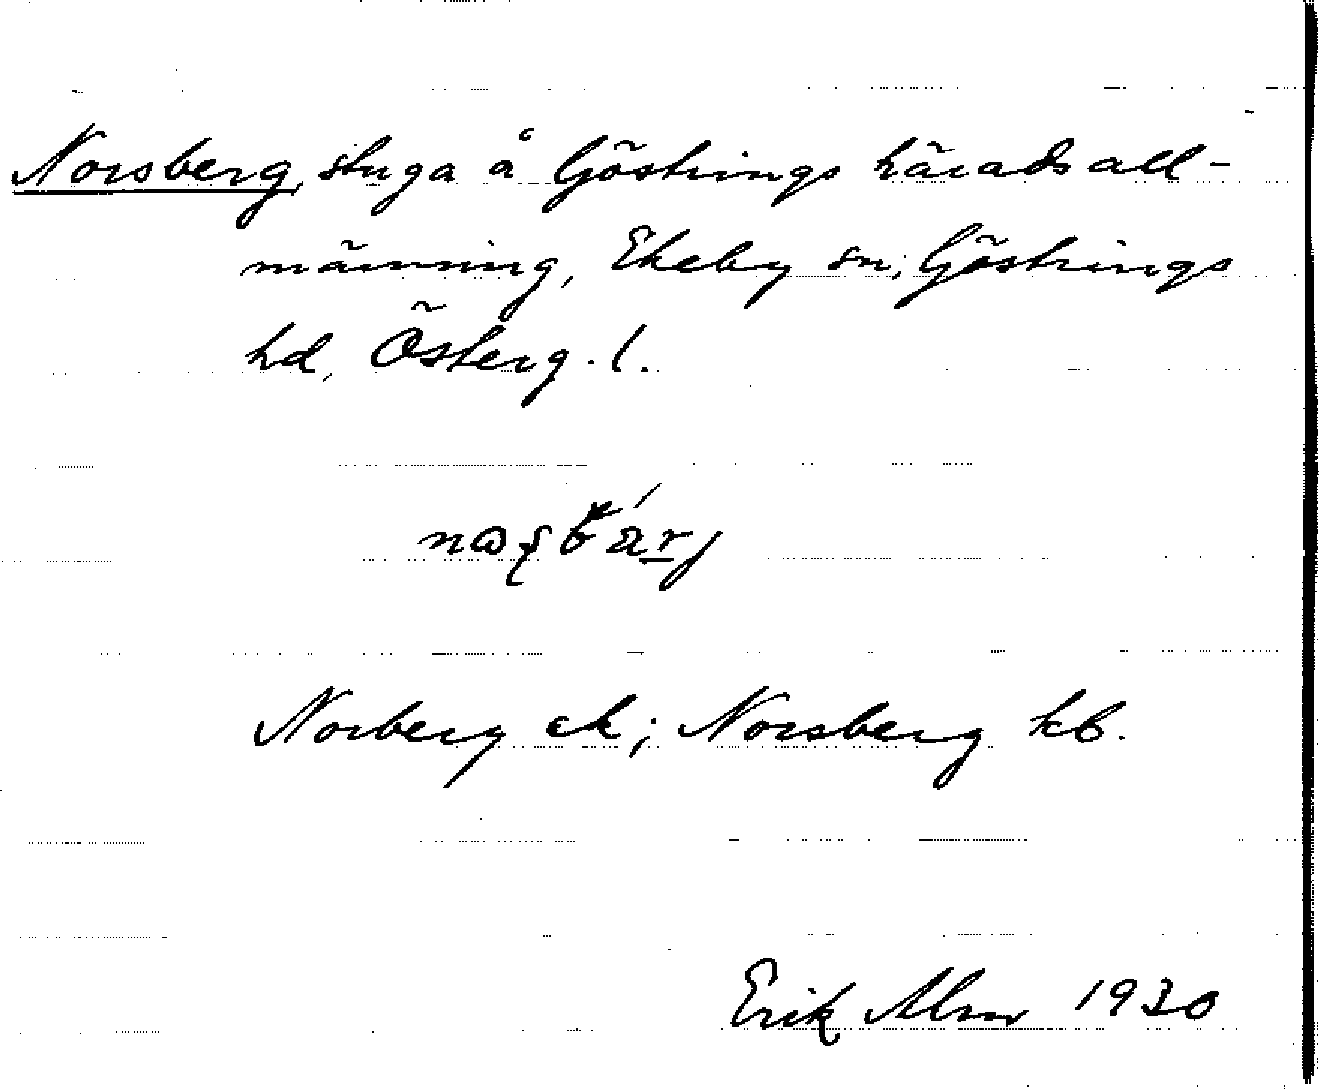 Norsberg, stuga å Göstrings häradsall-
männing, Ekeby sn, Göstrings
hd, Österg. l.
Norberg ek; Norsberg kb.
Erik Alm 1930